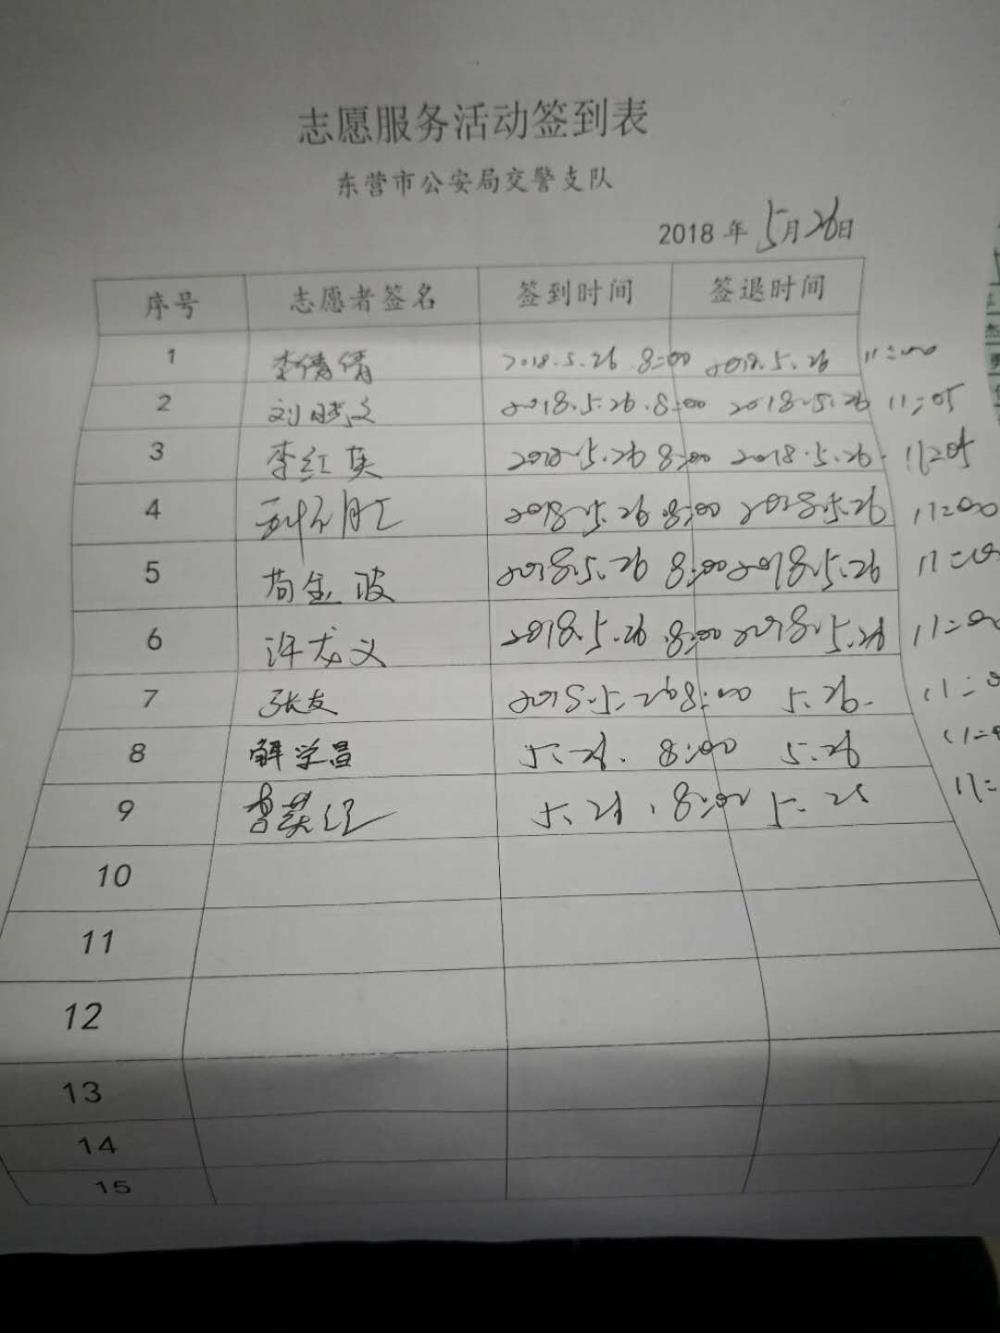 志愿服务活动签到表
东营市公安局交警支队
2018 年 5月26日
序号 志愿者签名 签到时间 签退时间
1 李倩倩 2018.5.26 8:00 2018.5.26 11:00
2 刘晓文 2018.5.26.8:00 2018.5.26 11:05
3 李红英 2018.5.26 8:00 2018.5.26. 11:05
4 2018.5.26 8:00 2018.5.26 11:00
5 苟金波 2018.5.26 8:00 2018.5.26 11:00
6 许龙义 2018.5.26 8:00 2018.5.26 11:00
7 张友 2018.5.26 8:00 5.26. 11:
8 解学昌 5.26. 8:00 5.26 11:
9 5.26.8:00 5.26 11:
10
11
12
13
14
15